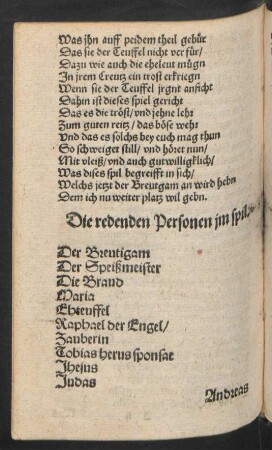 Was jhn auff peidem theil gebür
Das sie der Teuffel nicht ver für/
Dazu wie auch die eheleut mügn
In jrem Creutz ein trost erkriegn
Wenn sie der Teuffel jrgnt anficht
Dahin ist dieses spiel gericht
Das es die tröst/vnd jehne lehr
Zum guten reitz/das böse wehr
Vnd das es solchs bey euch mag thun
So schweiget still/vnd höret nun/
Mit vleiß/vnd auch gutwilligklich/
Was dises spil begreifft in sich/
Welchs jetzt der Breutgam an wird hebn
Dem ich nu weiter platz wil gebn.
Die redenden Personen jm spil.
Der Breutigam
Der Speißmeister
Die Braud
Maria
Ehteuffel
Raphael der Engel/
Zauberin
Tobias herus sponsat
Jhesus
Judas
Andreas